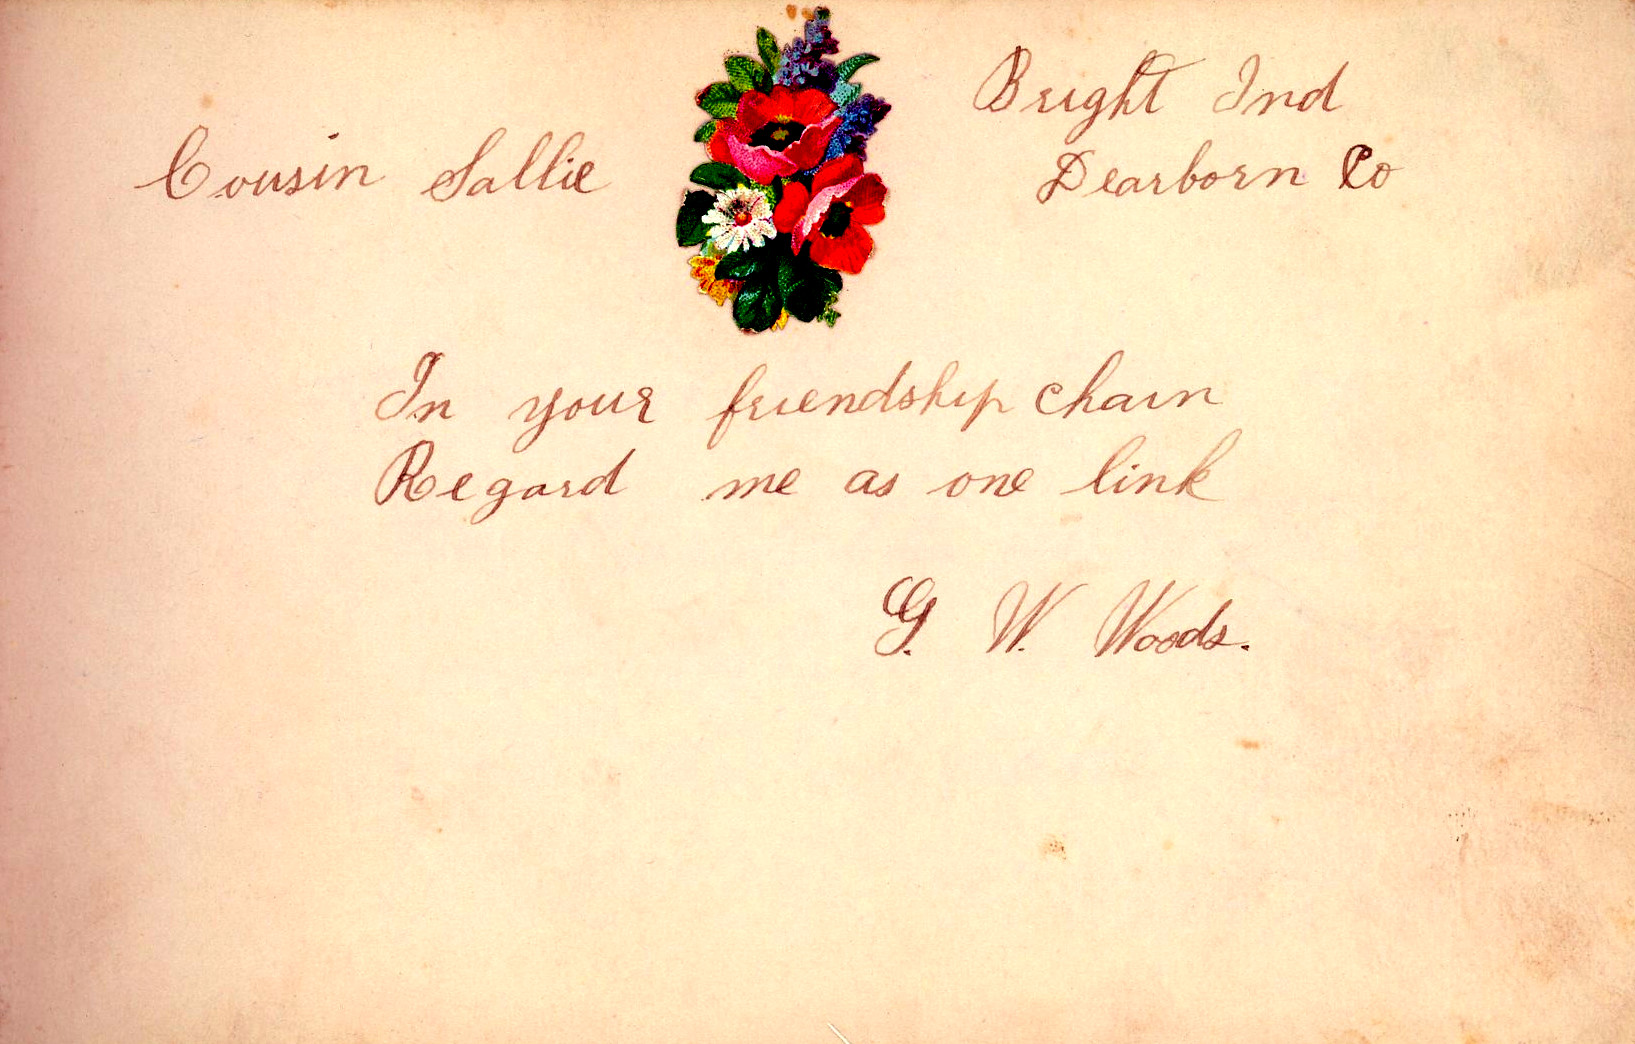 Bright Ind
Dearborn Co
Cousin Sallie
In your friendship chain
Regard me as one link
G. W. Woods.